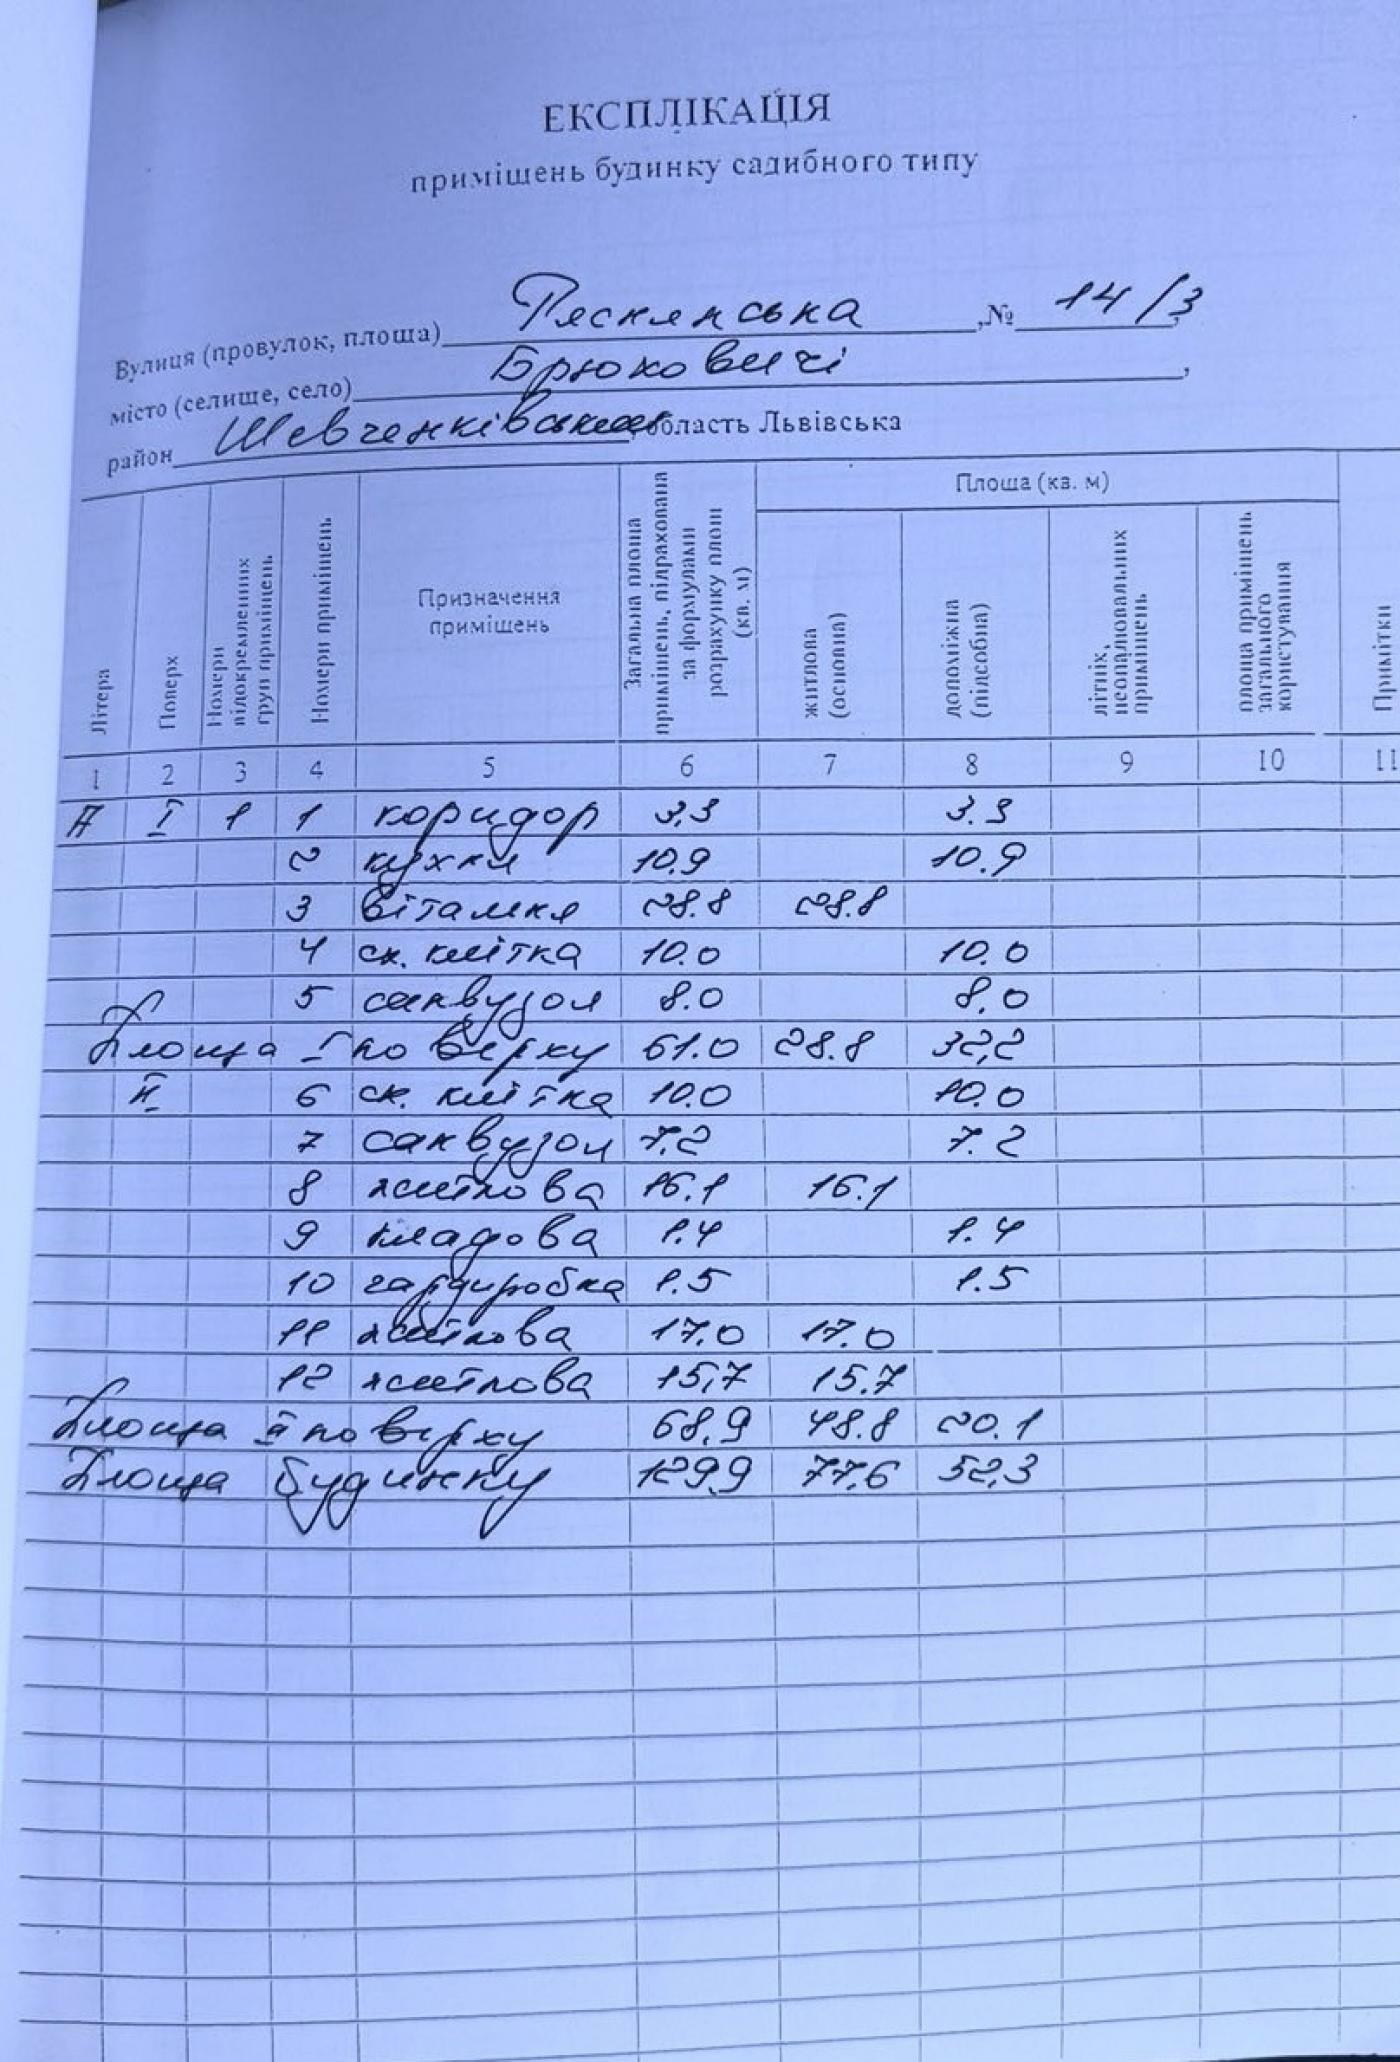 ЕКСПЛІКАЦІЯ
приміщень будинку садибного типу
Вулиця (провулок, площа) Ряснянська, № 14/3,
місто (селище, село) Брюховичі,
район Шевченківський, область Львівська
Літера
Поверх
Номери відокремлених груп приміщень
Номери приміщень
Призначення приміщень
Загальна площа приміщень, підрахована за формулами розрахунку площ (кв. м)
Площа (кв. м)
житлова (основна)
допоміжна (підсобна)
літніх, неопалювальних приміщень
площа приміщень загального користування
Примітки
1 2 3 4 5 6 7 8 9 10 11
А І 1 1 коридор 3,3 3.3
2 кухня 10,9 10.9
3 вітальня 28.8 28.8
4 сх. клітка 10.0 10.0
5 санвузол 8.0 8.0
Площа І поверху 61.0 28.8 32,2
ІІ 6 сх. клітка 10.0 10.0
7 санвузол 7,2 7.2
8 житлова 16.1 16.1
9 кладова 1.4 1.4
10 гардиробна 1.5 1.5
11 житлова 17.0 17.0
12 житлова 15,7 15.7
Площа ІІ поверху 68,9 48.8 20.1
Площа будинку 129,9 77,6 52,3